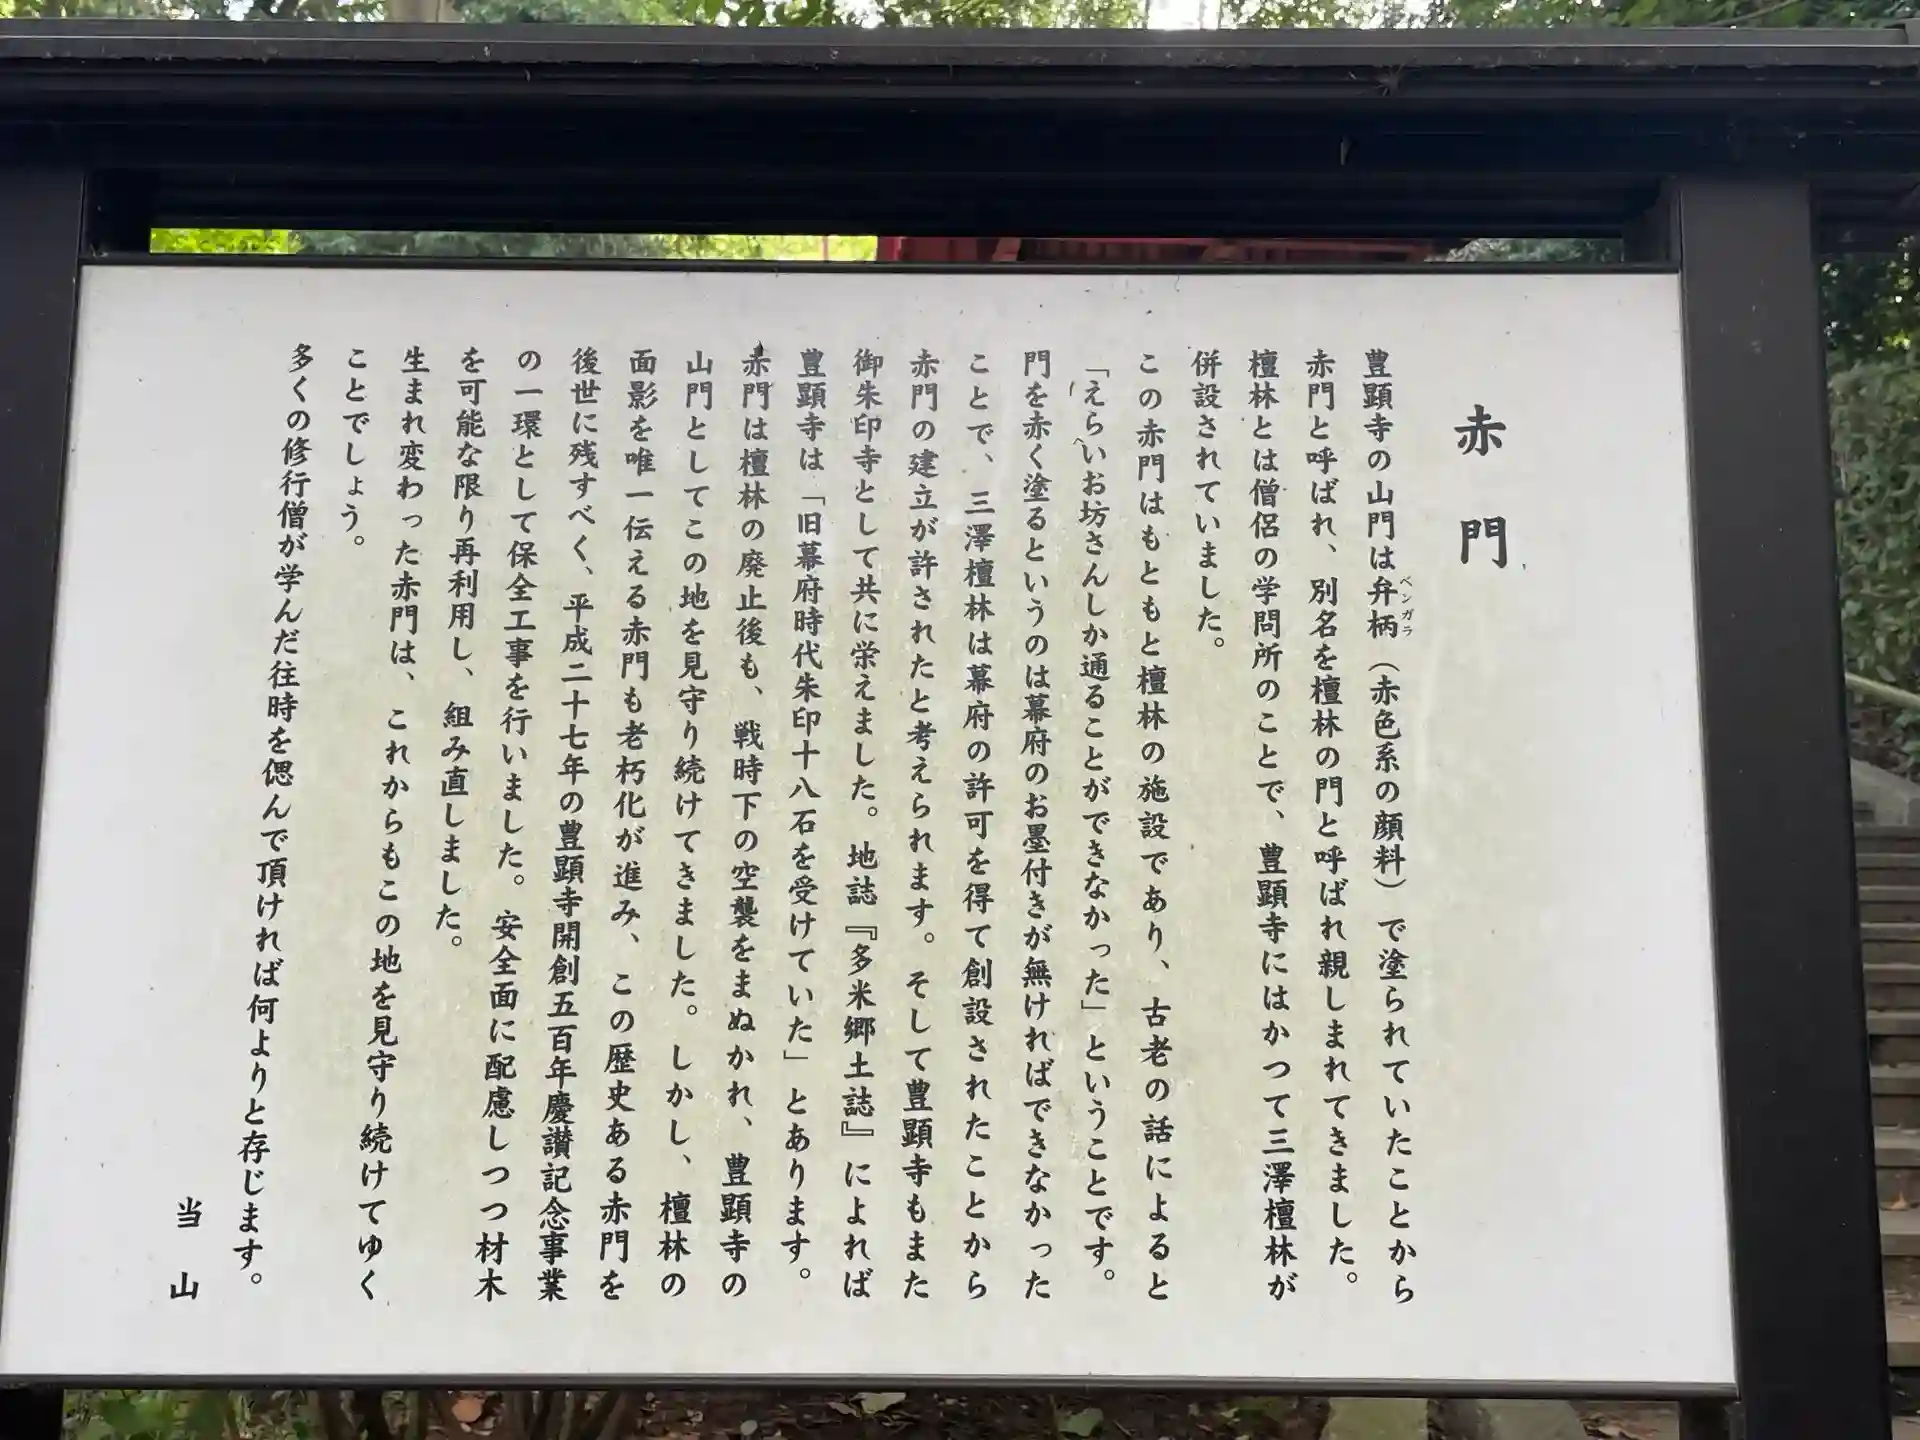 赤門
豊顕寺の山門は弁柄（赤色系の顔料）で塗られていたことから
ベンガラ
赤門と呼ばれ、別名を檀林の門と呼ばれ親しまれてきました。
檀林とは僧侶の学問所のことで、豊顕寺にはかつて三澤檀林が
併設されていました。
この赤門はもともと檀林の施設であり、古老の話によると
「えらいお坊さんしか通ることができなかった」ということです。
門を赤く塗るというのは幕府のお墨付きが無ければできなかった
ことで、三澤檀林は幕府の許可を得て創設されたことから
赤門の建立が許されたと考えられます。そして豊顕寺もまた
御朱印寺として共に栄えました。地誌『多米郷土誌』によれば
豊顕寺は「旧幕府時代朱印十八石を受けていた」とあります。
赤門は檀林の廃止後も、戦時下の空襲をまぬかれ、豊顕寺の
山門としてこの地を見守り続けてきました。しかし、檀林の
面影を唯一伝える赤門も老朽化が進み、この歴史ある赤門を
後世に残すべく、平成二十七年の豊顕寺開創五百年慶讃記念事業
の一環として保全工事を行いました。安全面に配慮しつつ材木
を可能な限り再利用し、組み直しました。
生まれ変わった赤門は、これからもこの地を見守り続けてゆく
ことでしょう。
多くの修行僧が学んだ往時を偲んで頂ければ何よりと存じます。
当山